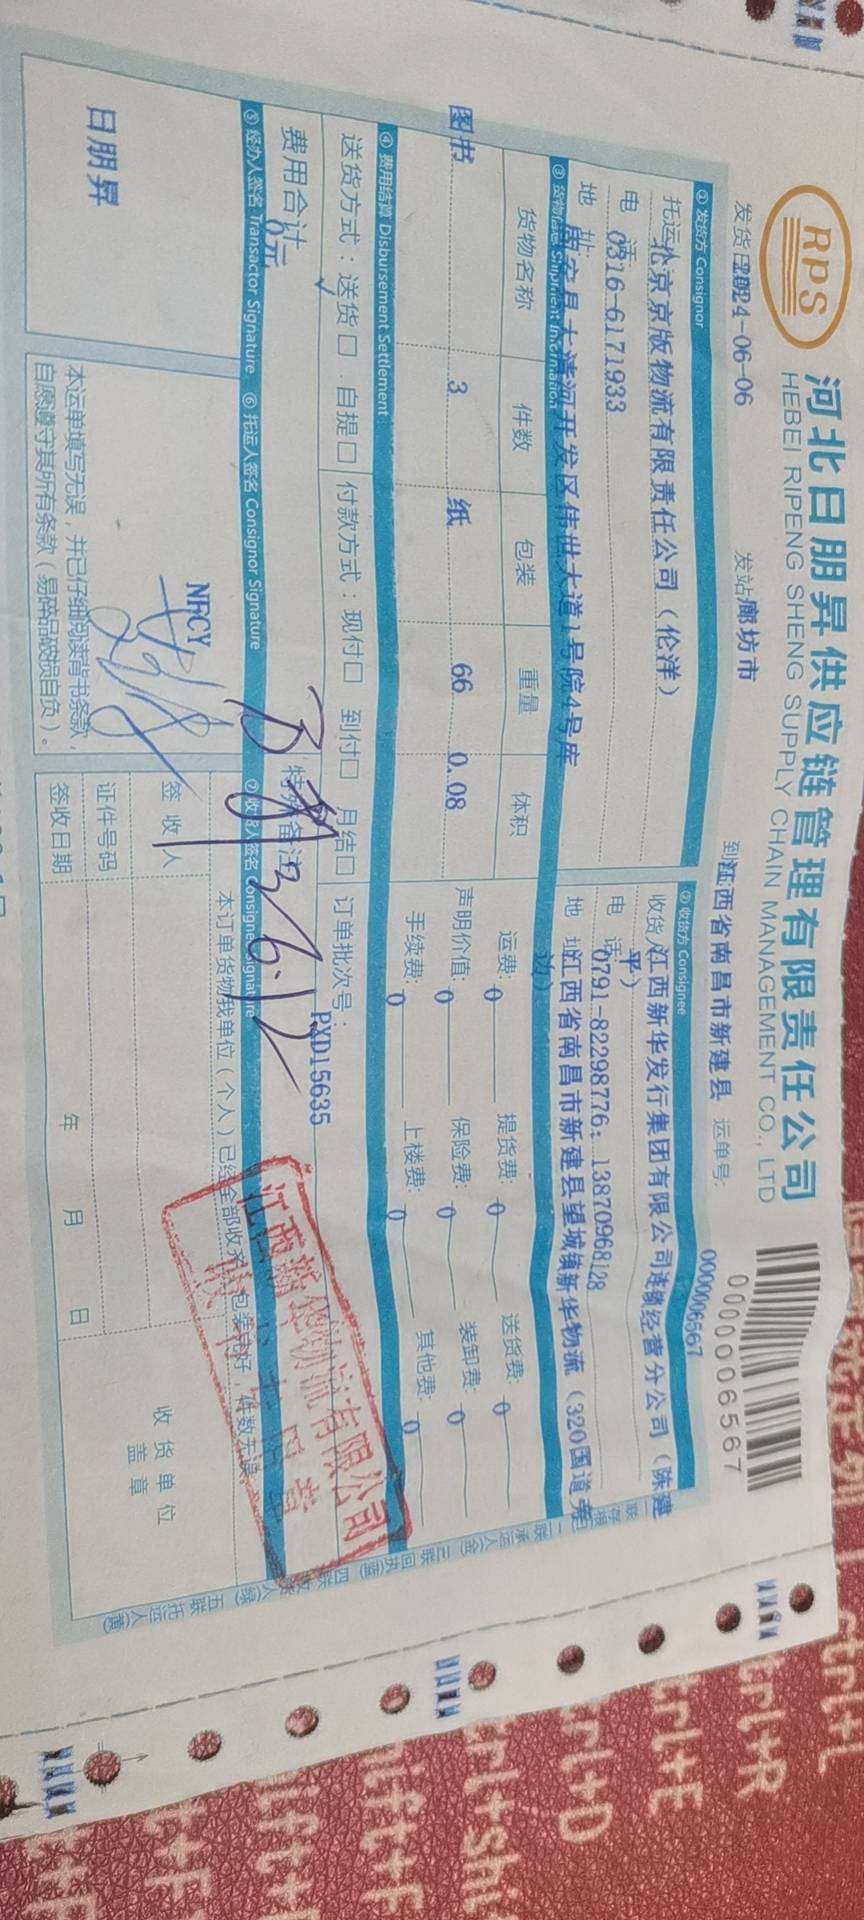 RPS
河北日朋昇供应链管理有限责任公司
HEBEI RIPENG SHENG SUPPLY CHAIN MANAGEMENT CO., LTD
0000006567
发货日期 2024-06-06 发站 廊坊市 到站 江西省南昌市新建县 运单号: 0000006567
① 发货方 Consignor
② 收货方 Consignee
托运人 北京京版物流有限责任公司（伦洋）
收货人 江西新华发行集团有限公司连锁经营分公司（陈建
平）
电 话 0316-6171933
电 话 0791-82298776; 13870968128
地 址 固安县大清河开发区伟世大道1号院4号库
地 址 江西省南昌市新建县望城镇新华物流（320国道旁
边）
③ 货物信息 Shipment Information
货物名称 件数 包装 重量 体积
图书 3 纸 66 0.08
运费: 0 提货费: 0 送货费: 0
声明价值: 0 保险费: 0 装卸费: 0
手续费: 0 上楼费: 0 其他费: 0
④ 费用结算 Disbursement Settlement
送货方式：送货□ 自提□ 付款方式：现付□ 到付□ 月结□
✓
订单批次号: PXD15635
费用合计: 0元
特殊备注
⑤ 经办人签名 Transactor Signature
⑥ 托运人签名 Consignor Signature
⑦ 收货人签名 Consignee Signature
日朋昇
NFCY
本运单填写无误，并已仔细阅读背书条款，
自愿遵守其所有条款（易碎品破损自负）。
本订单货物我单位（个人）已经全部收齐，包装完好，件数无误。
签收人
证件号码
签收日期 年 月 日
收货单位
盖章
江西新华物流有限公司
一联存根
二联承运人(金)
三联回执(蓝)
四联收货人(绿)
五联托运人(黄)
ctrl+L
ctrl+R
ctrl+E
ctrl+D